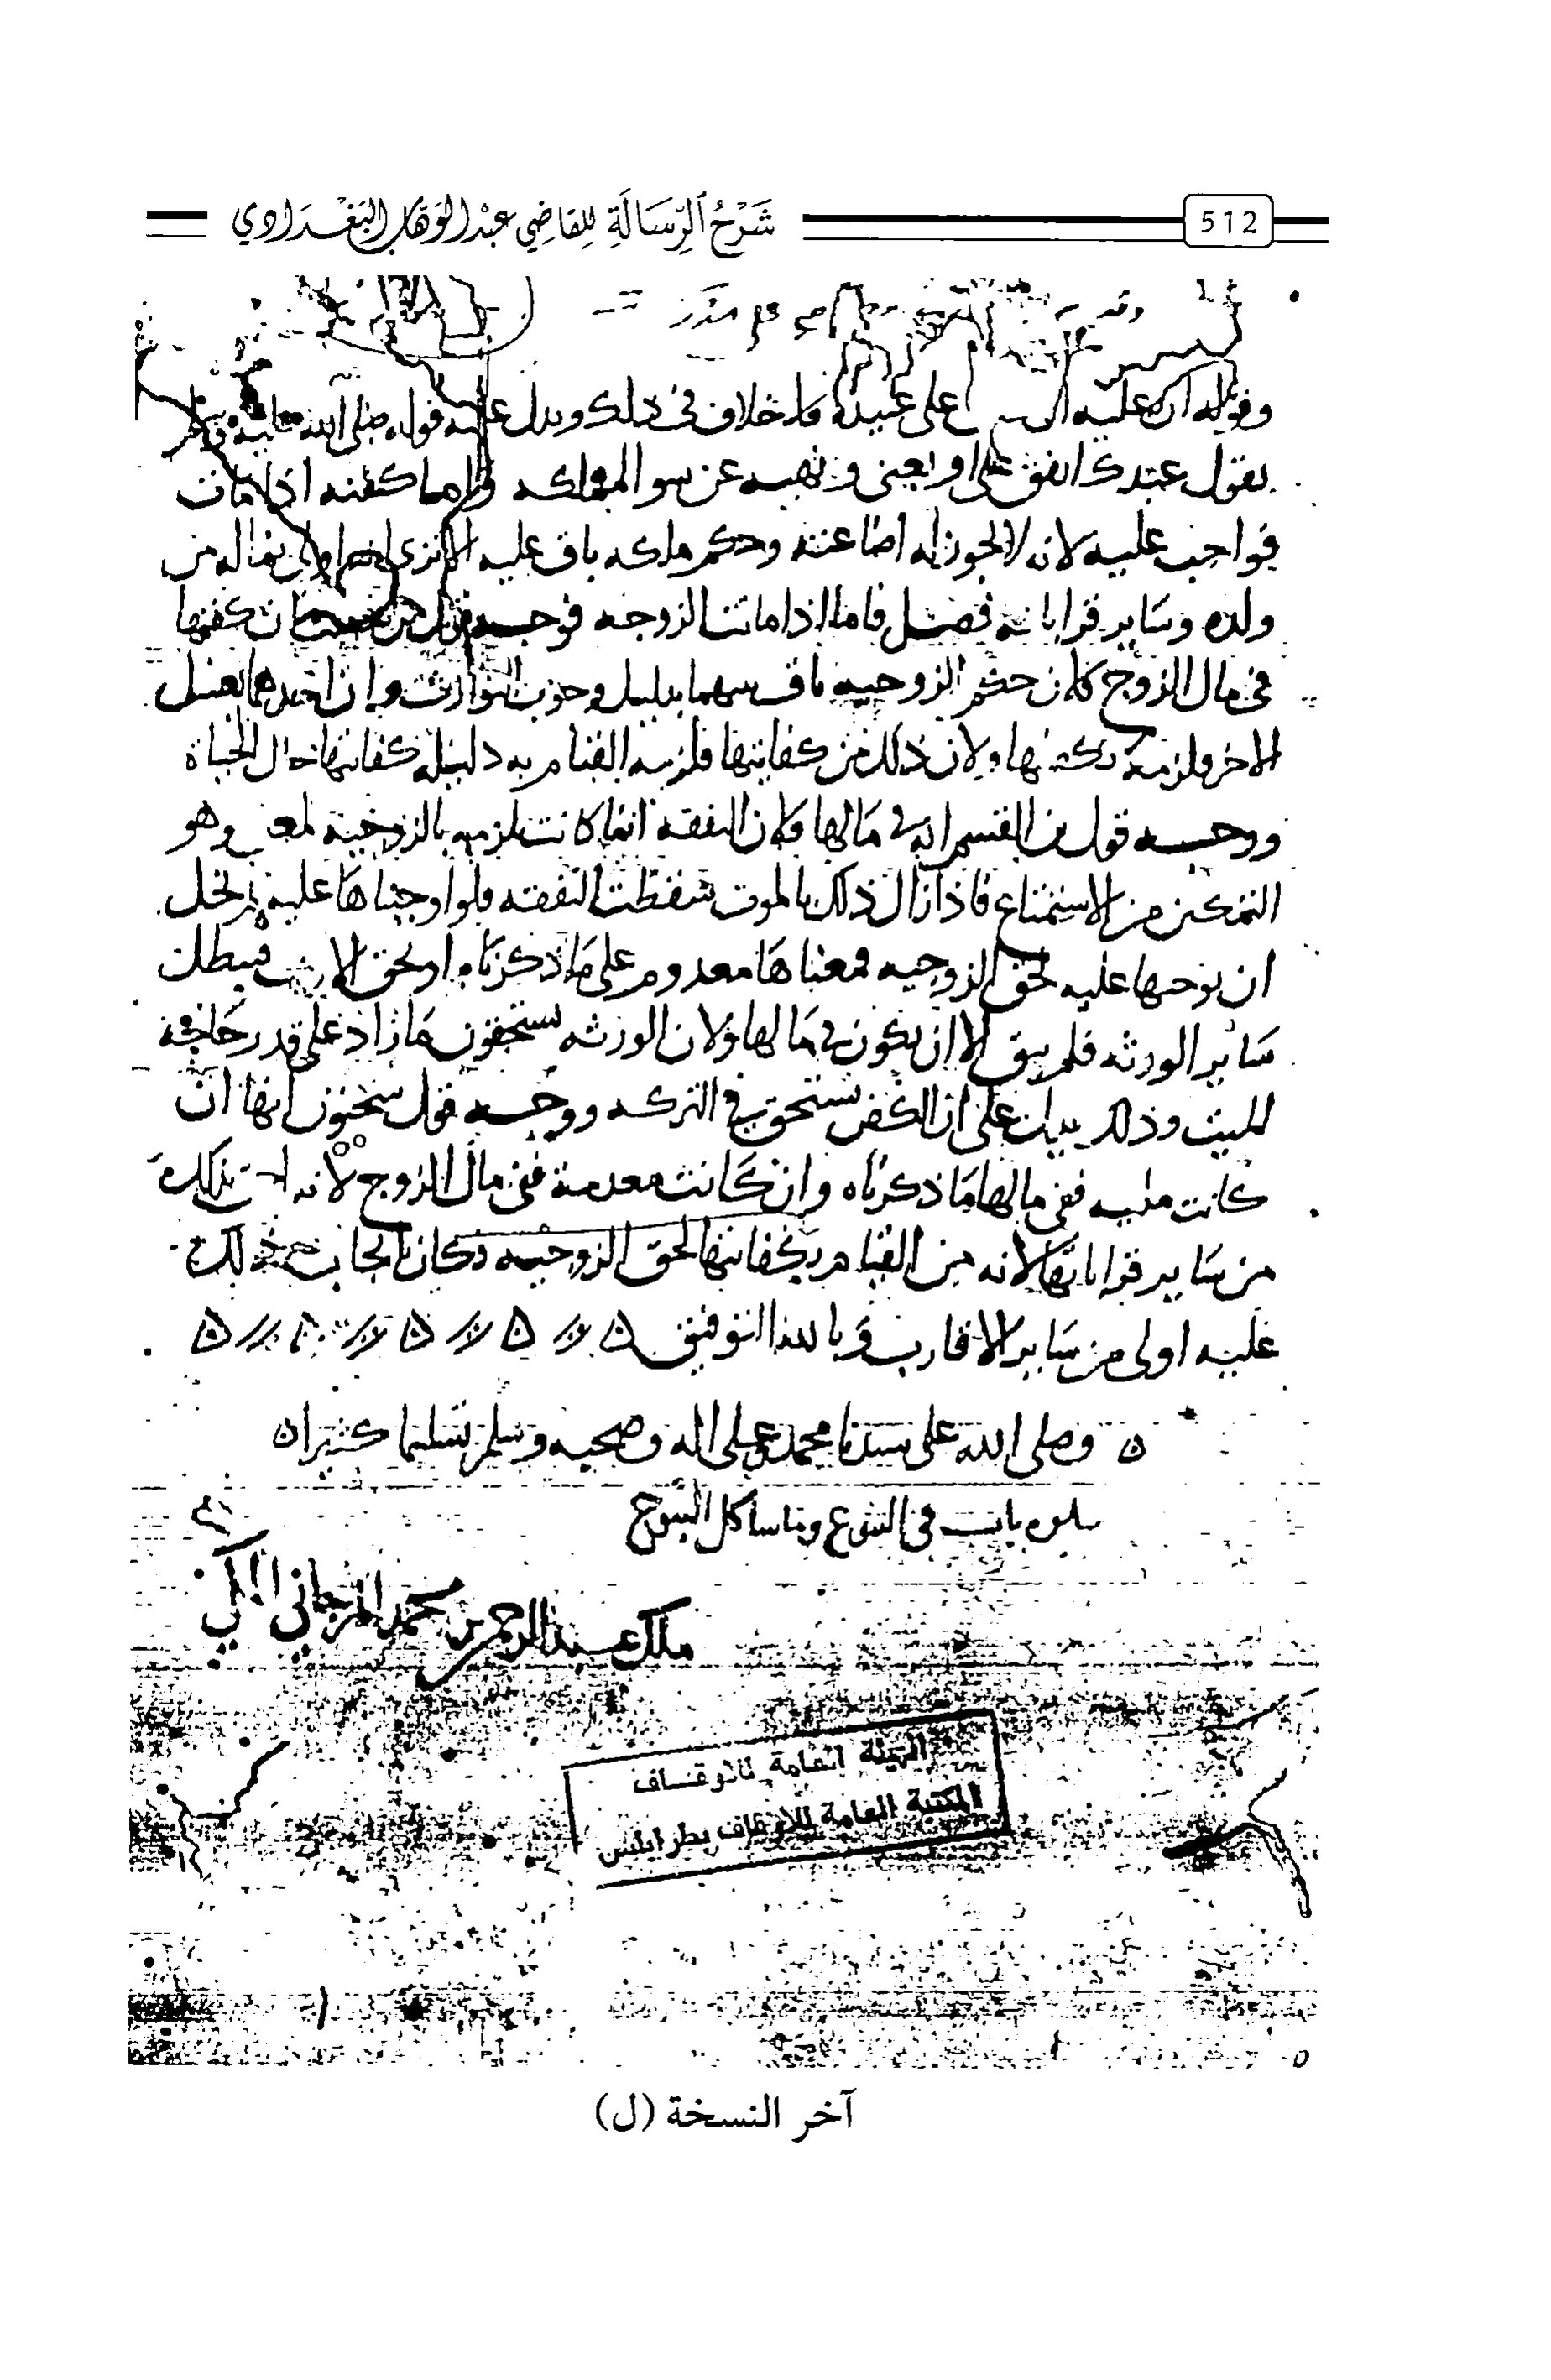 512
شَرْحُ ٱلرِّسَالَةِ لِلقَاضِي عَبْدِ الوَهَّابِ البَغْدَادِي
وقوله ان عليه ان على عبيده فلا خلاف في ذلك ويدل عليه قوله صلى الله عليه وسلم
يقول عبدك انفق علي او بعني ونهيه عن سو الملكه واما كفنه اذا مات
فواجب عليه لانه لا يجوز له اضاعته وحكم ملكه باق عليه الا ترى انه اولى بماله من
ولده وساير قراباته فصل فاما اذا ماتت الزوجه فوجه كفنها
في مال الزوج لان حكم الزوجيه باق بينهما بدليل وجوب التوارث وان احدهما يغسل
الاخر ولزمه تكفينها ولان ذلك من كفايتها فلزمه القيام به دليله كفايتها حال الحياة
ووجه قول بن القسم انه في مالها فلان النفقه انما كانت تلزمه بالزوجية لمعنى وهو
التمكين من الاستمتاع فاذا زال ذلك بالموت سقطت النفقه فلو اوجبناها عليه لم يخل
ان نوجبها عليه لحق الزوجيه فمعناها معدوم على ما ذكرناه او لحق الارث فيبطل
ساير الورثه فلم يبق الا ان يكون في مالها ولان الورثه يستحقون ما زاد على قدر حاجة
الميت وذلك على ان الكفن يستحق في التركه ووجه قول سحنون انها ان
كانت مليه ففي مالها ما ذكرناه وان كانت معدمة ففي مال الزوج لانه بذلك
من ساير قراباتها لانه من القيام بكفايتها لحق الزوجيه فكان ايجاب ذلك
عليه اولى من ساير الاقارب وبالله التوفيق
وصلى الله على سيدنا محمد وعلى اله وصحبه وسلم تسليما كثيرا
يتلوه باب في البيوع وما شاكل البيوع
ملك عبد الرحمن بن محمد المرجاني المكي
الهيئة العامة للأوقاف
المكتبة العامة للأوقاف بطرابلس
آخر النسخة (ل)